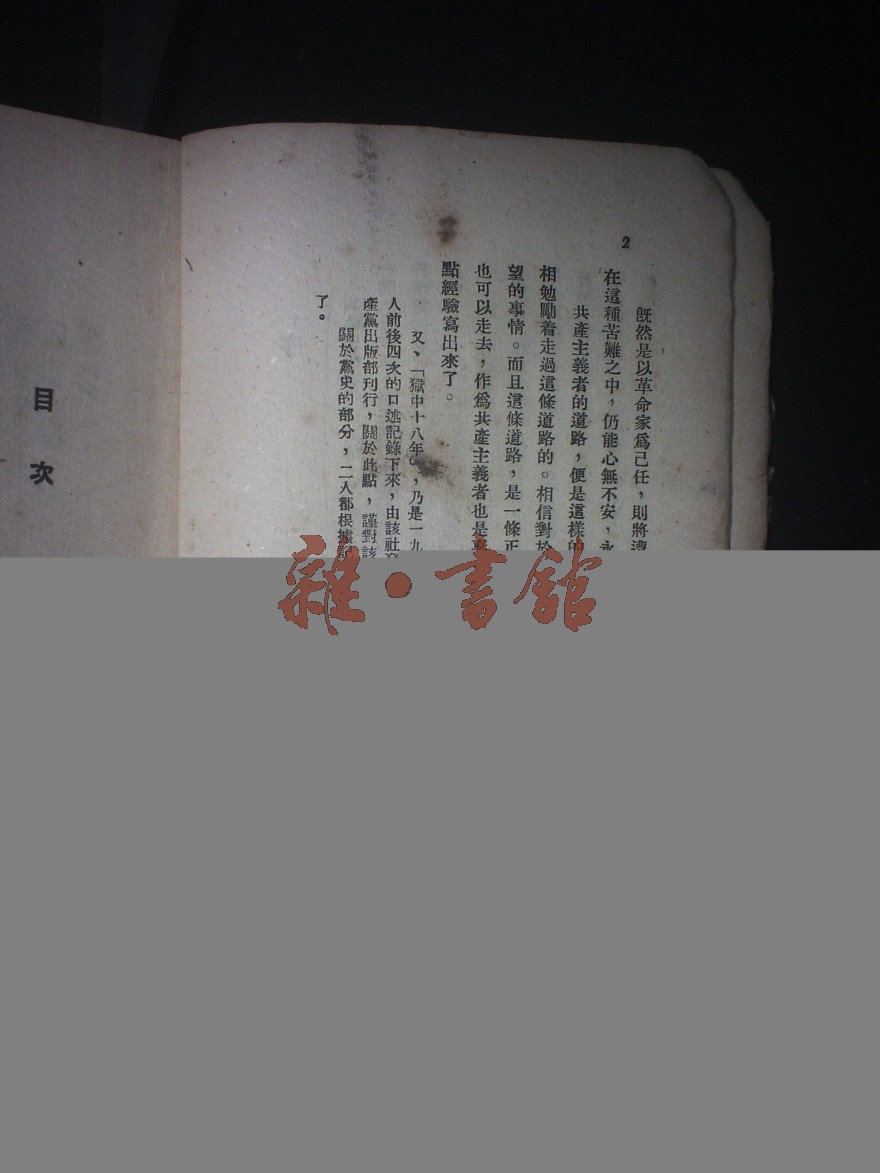 2
既然是以革命家爲己任，則將遭
在這種苦難之中，仍能心無不安，永
共產主義者的道路，便是這樣的
相勉勵着走過這條道路的。相信對於
望的事情。而且這條道路，是一條正
也可以走去，作爲共產主義者也是
點經驗寫出來了。
又、「獄中十八年」，乃是一九
人前後四次的口述記錄下來，由該社
產黨出版部刊行，關於此點，謹對該
關於黨史的部分，二人都根據記
了。
目次
雜·書館